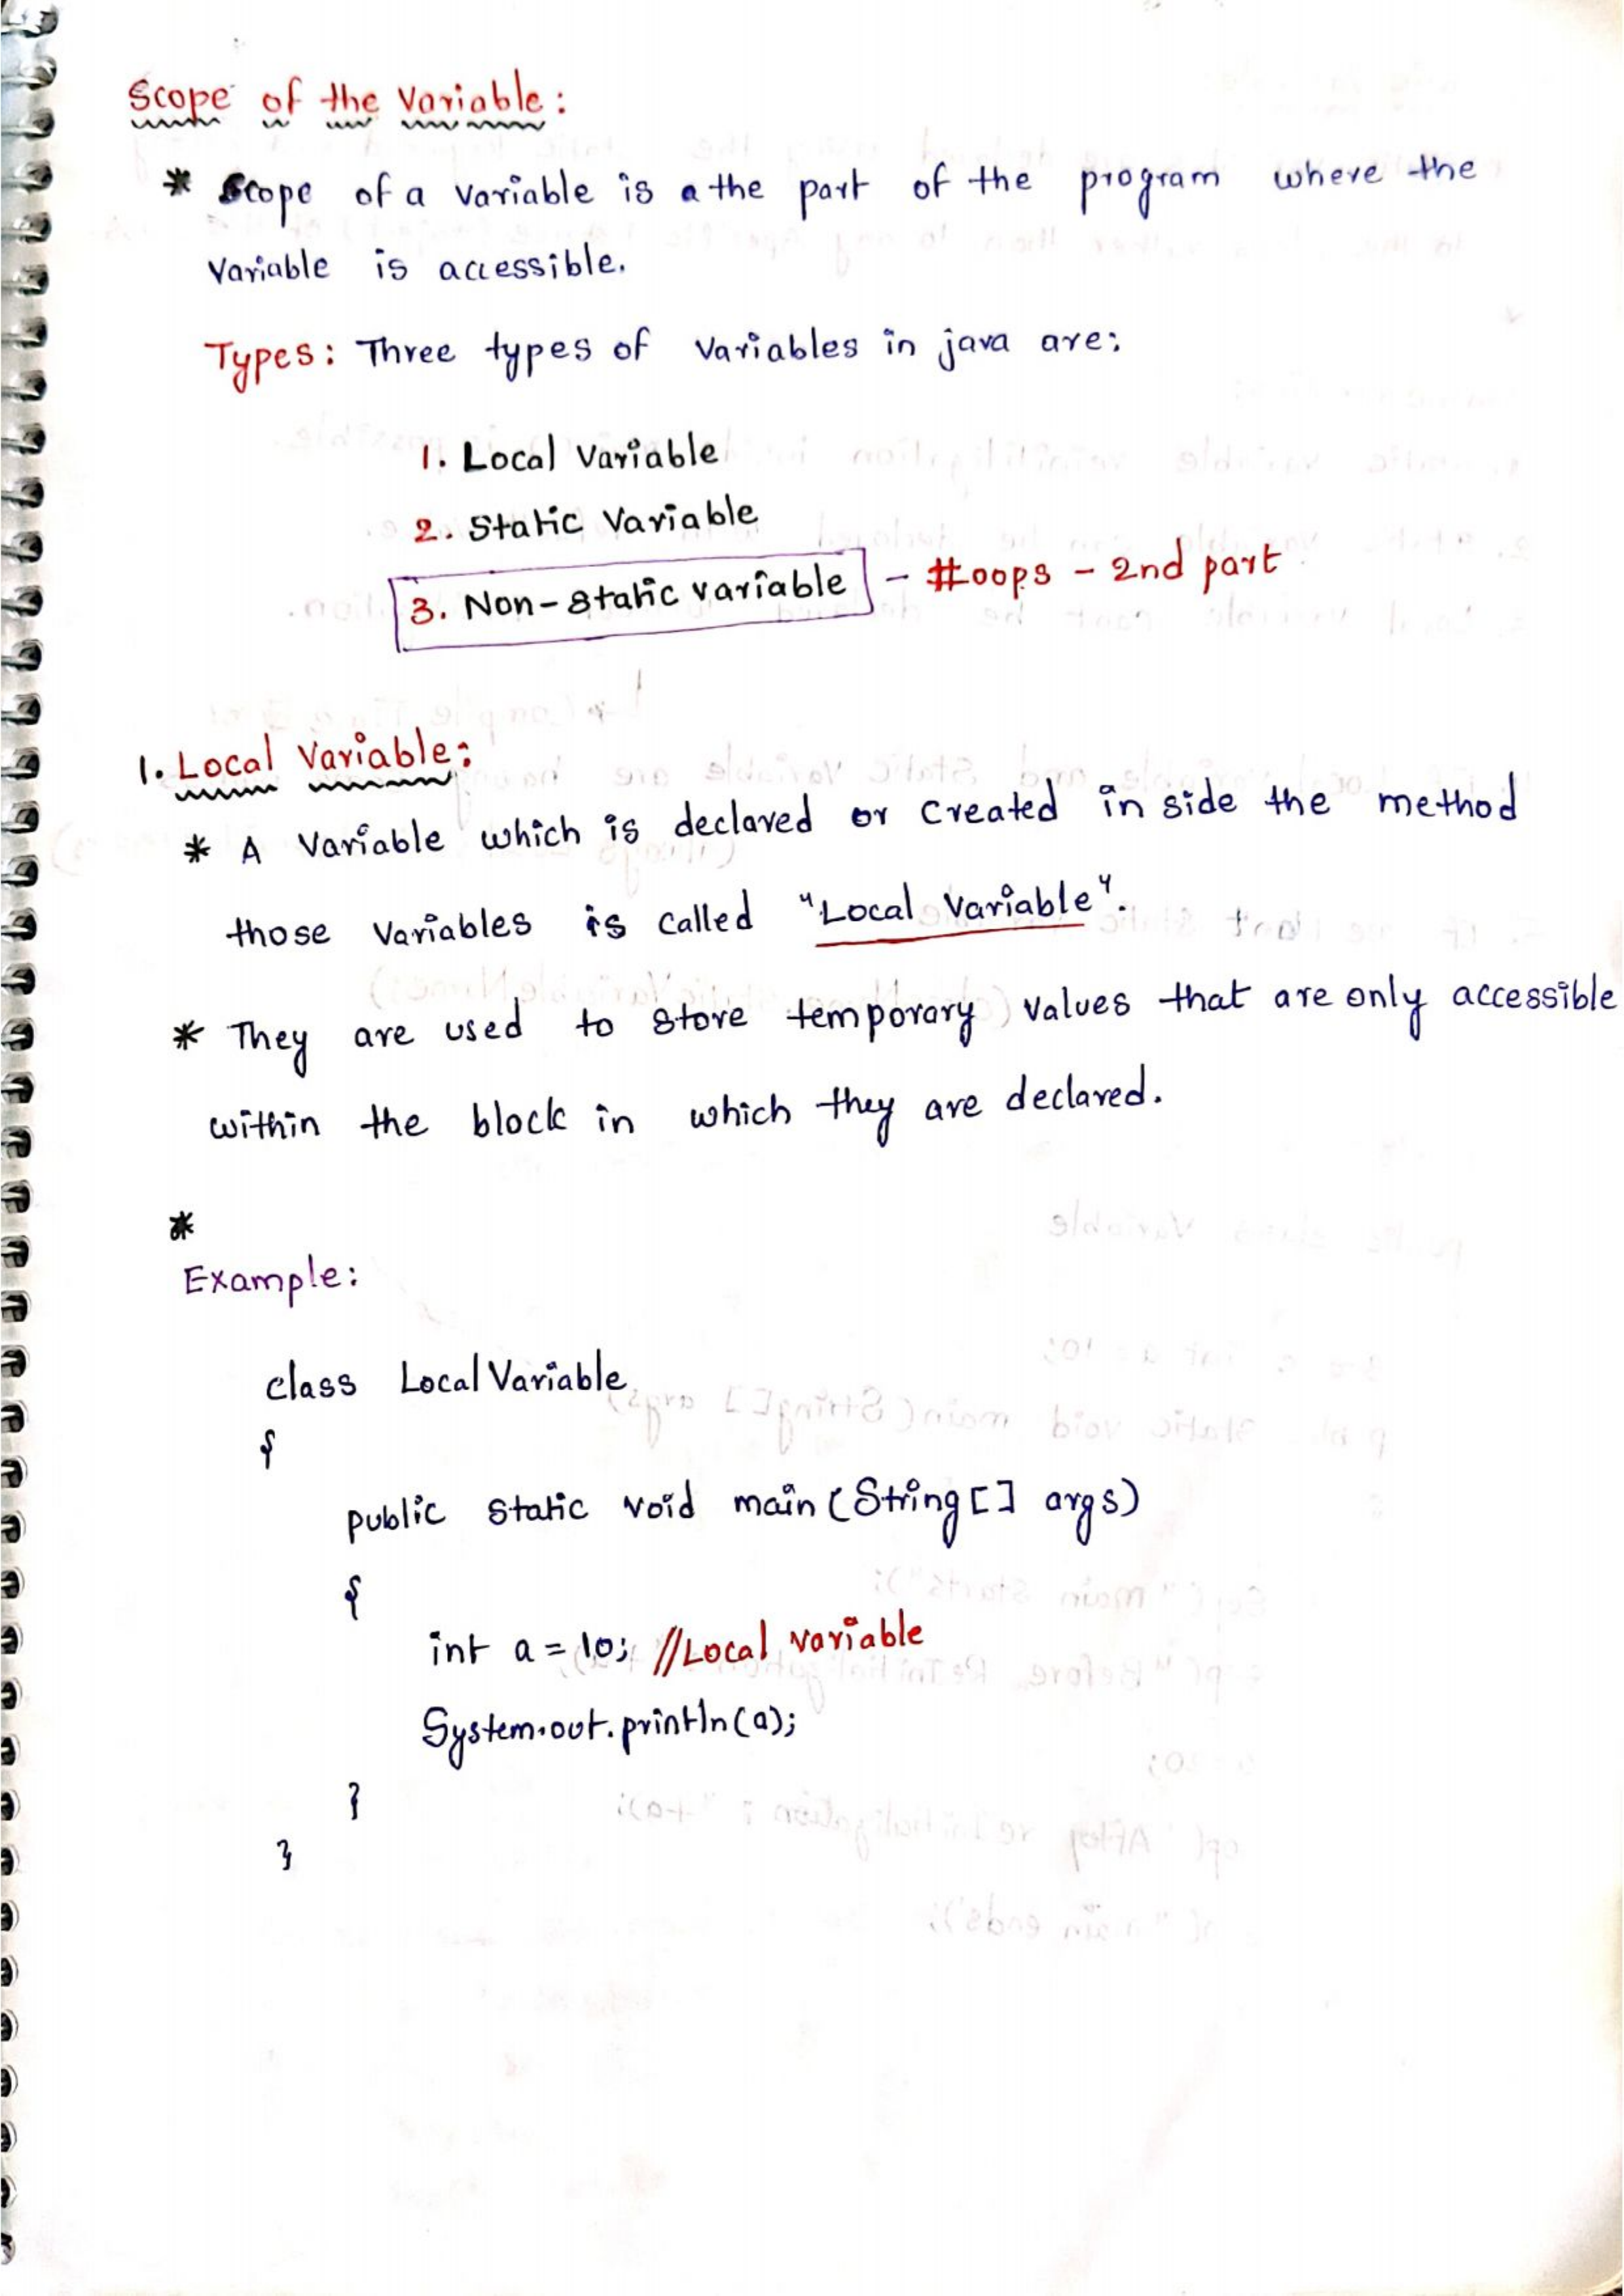 Scope of the Variable:
* Scope of a variable is a the part of the program where the
Variable is accessible.
Types: Three types of Variables in java are:
1. Local Variable
2. Static Variable
3. Non-Static variable - #oops - 2nd part
1. Local Variable:
* A Variable which is declared or Created in side the method
those Variables is called "Local Variable".
* They are used to store temporary values that are only accessible
within the block in which they are declared.
*
Example:
class LocalVariable
{
public static void main(String[] args)
{
int a = 10; //Local variable
System.out.println(a);
}
}